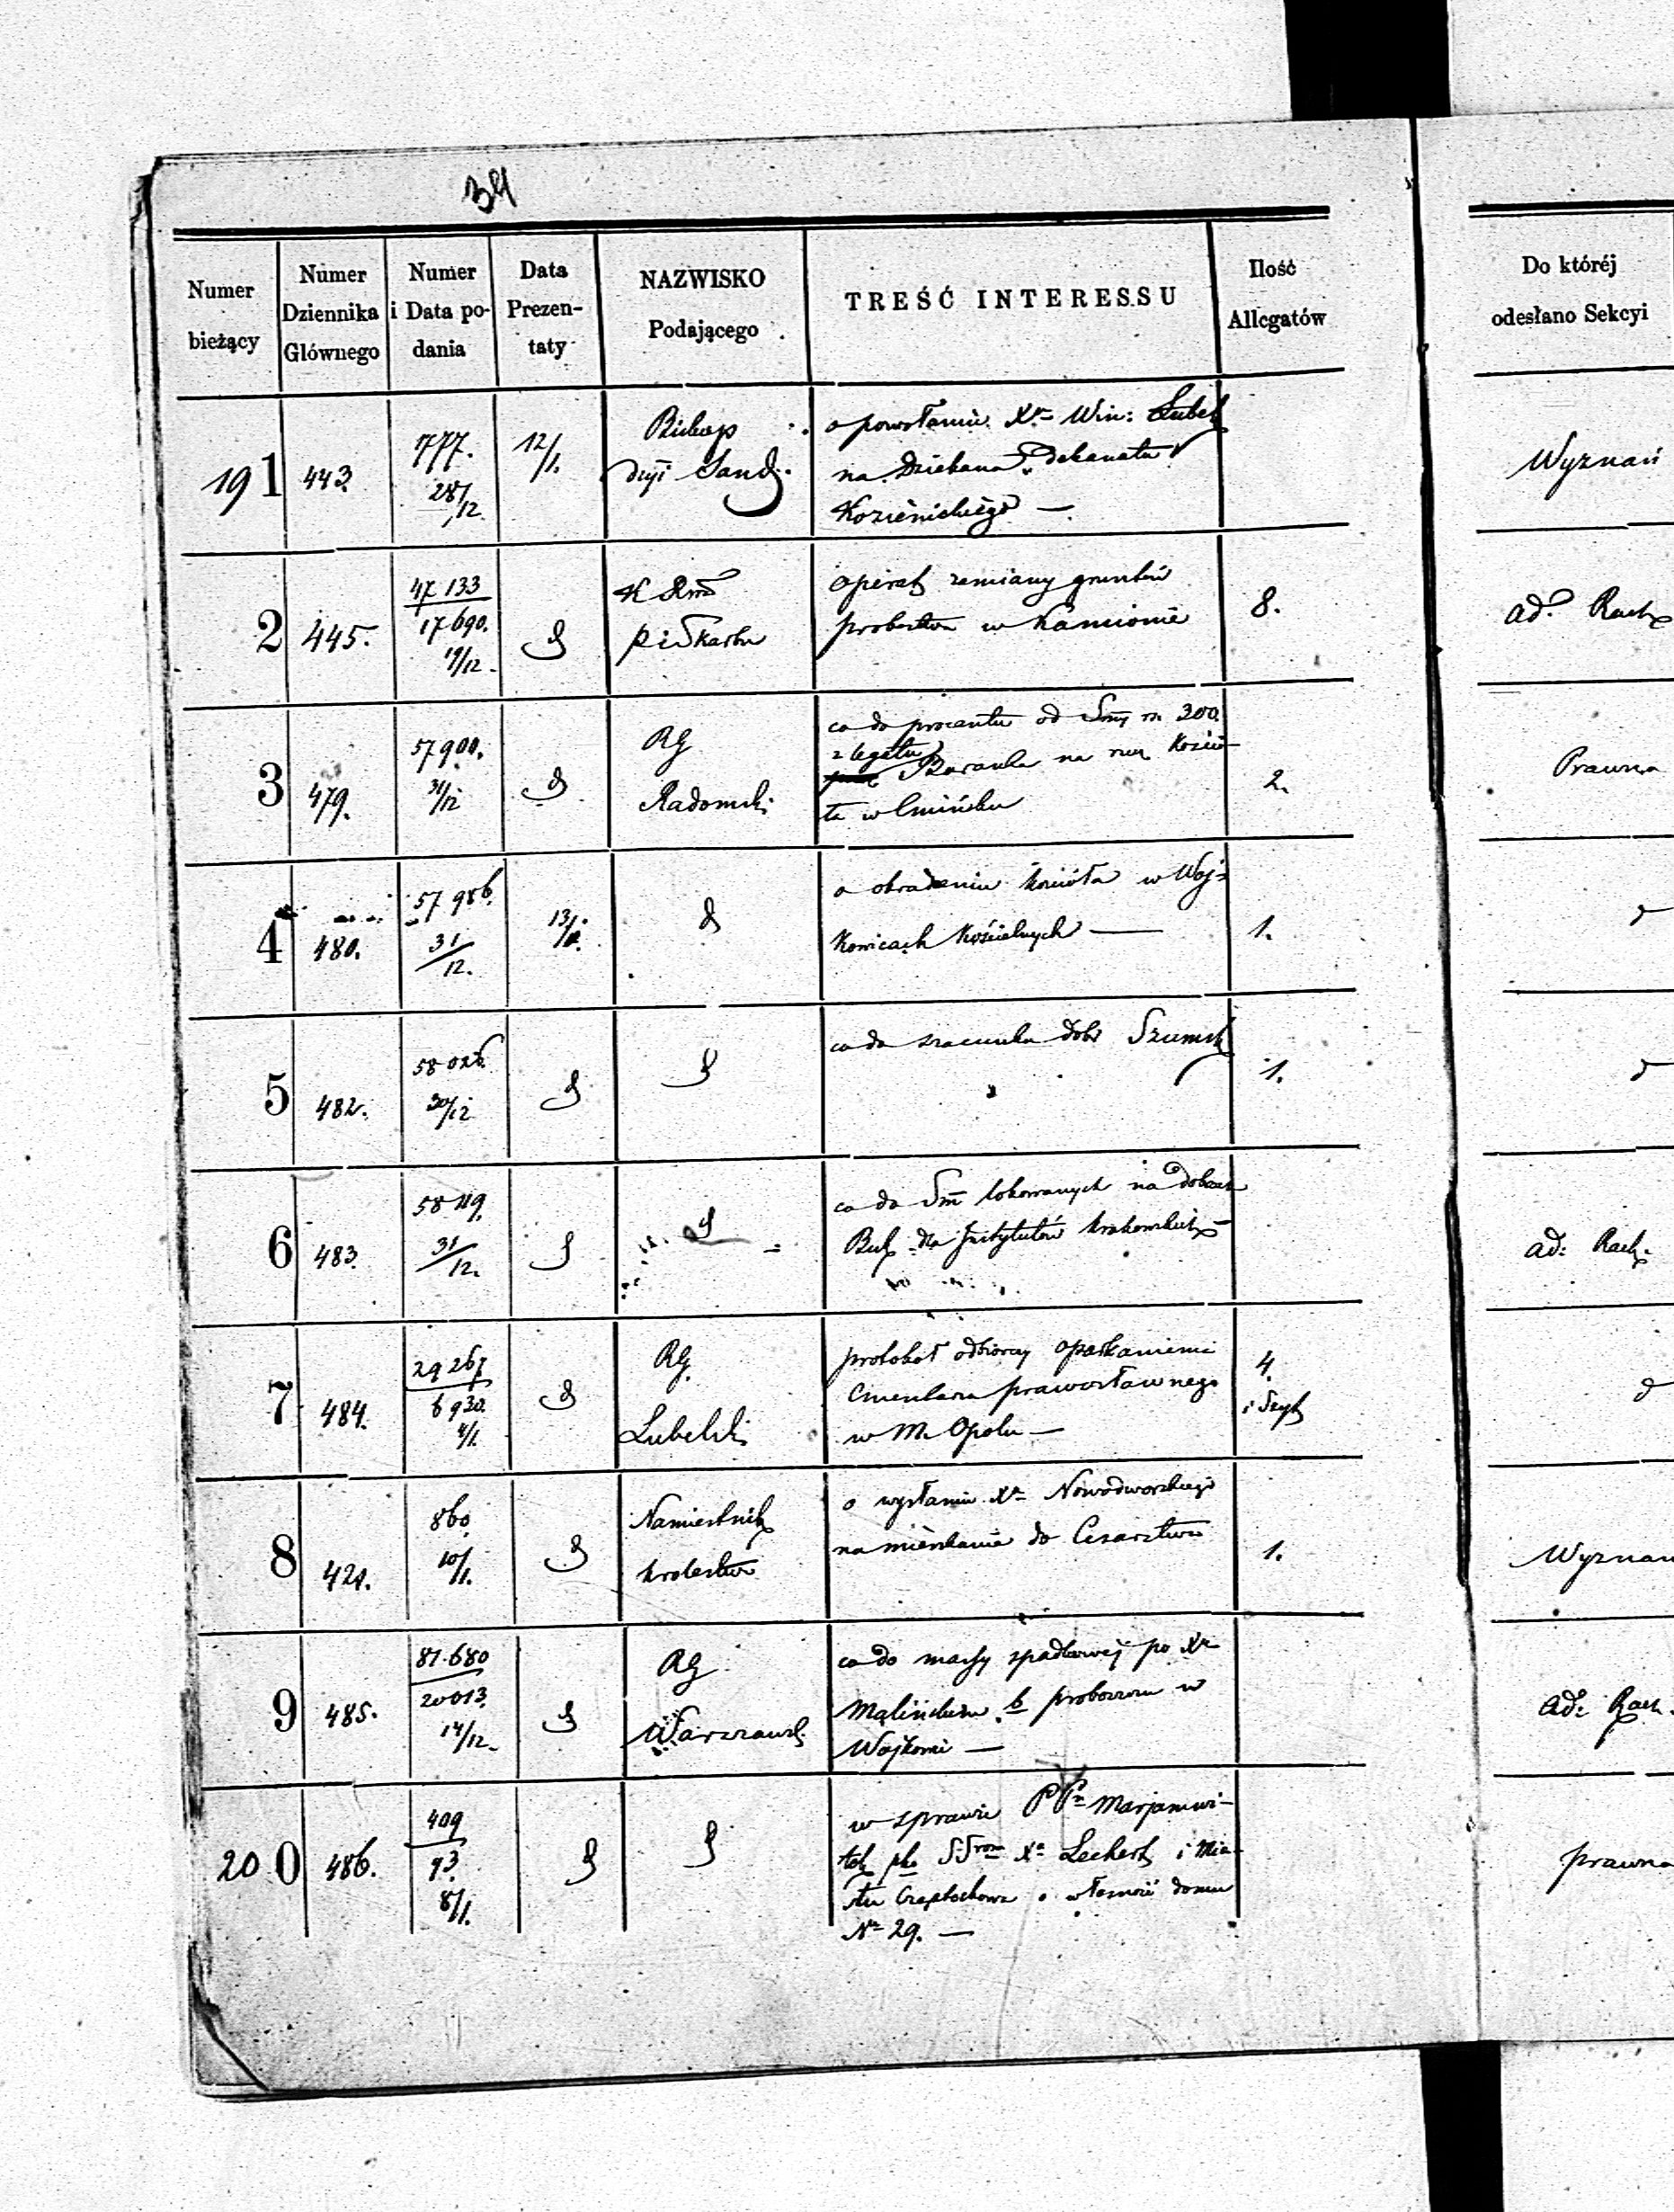 34
Numer bieżący
Numer Dziennika Głównego
Numer i Data podania
Data Prezentaty
NAZWISKO Podającego
TREŚĆ INTERESSU
Ilość Allegatów
Do któréj odesłano Sekcyi
191 443. 777. 28/12 12/1. Biskup
dyi Sand:
o powołaniu Xa Win:
na Dziekana dekanatu
Kozienickiego —
Wyznań
2 445. 47 133
17690. 19/12 d
Skarbu
operat zamiany gruntów
probostwa w Kamionie
8.
ad. Rach
3 479. 57900. 31/12 d
RG
Radomski
co do procentu od Smy rs. 300.
z legatu
na rzecz Kościo-
ła w
2.
Prawna
4 480. 57 986. 31/12. 13/1. d
o okradzeniu kościoła w Woj-
kowicach Kościelnych —
1.
d
5 482. 30/12 d
d
co do szacunku dóbr
1.
d
6 483. 31/12. d
d
co do Sm lokowanych na dobrach
dla Instytutów krakowskich —
ad: Rach.
7 484. 29267
6930. 4/1. d
RG.
Lubelski
protokół odbiorczy oparkanienia
Cmentarza prawosławnego
w M. Opolu —
4.
i Szyt
d
8 421. 860. 10/1. d
Namiestnik
Królestwa
o wysłaniu Xa Nowodworskiego
na mieszkanie do Cesarstwa
1.
Wyznań
9 485. 81.680
20013. 14/12. d
RG
Warszawsk.
co do massy spadkowej po Xu
Malińskim b proboszczu w
—
ad: Rach.
200 486. 409
93. 8/1. d
d
w sprawie PPn Marjawi-
tek pko SSrom Xa i Mia-
stu Częstochowa o własność domu
No 29. —
prawna